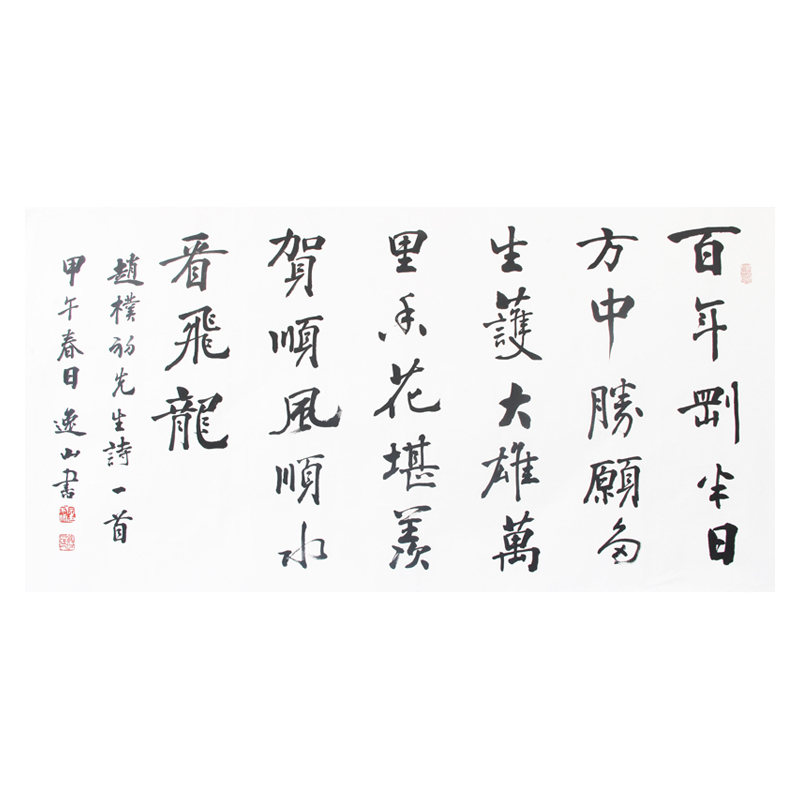 百年剛半日
方中勝願多
生護大雄萬
里香花堪羨
賀順風順水
看飛龍
趙樸初先生詩一首
甲午春日逸山書